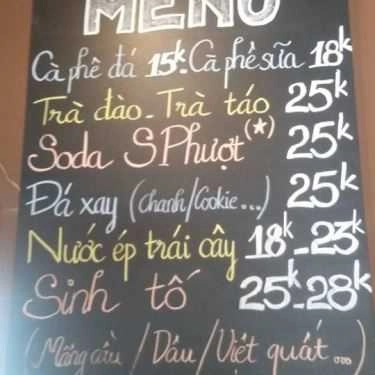 MENU
Cà phê đá 15k - Cà phê sữa 18k
Trà đào - Trà táo 25k
Soda S Phượt (*) 25k
Đá xay (Chanh/Cookie...) 25k
Nước ép trái cây 18k - 23k
Sinh tố 25k - 28k
(Mãng cầu / Dâu / Việt quất...)